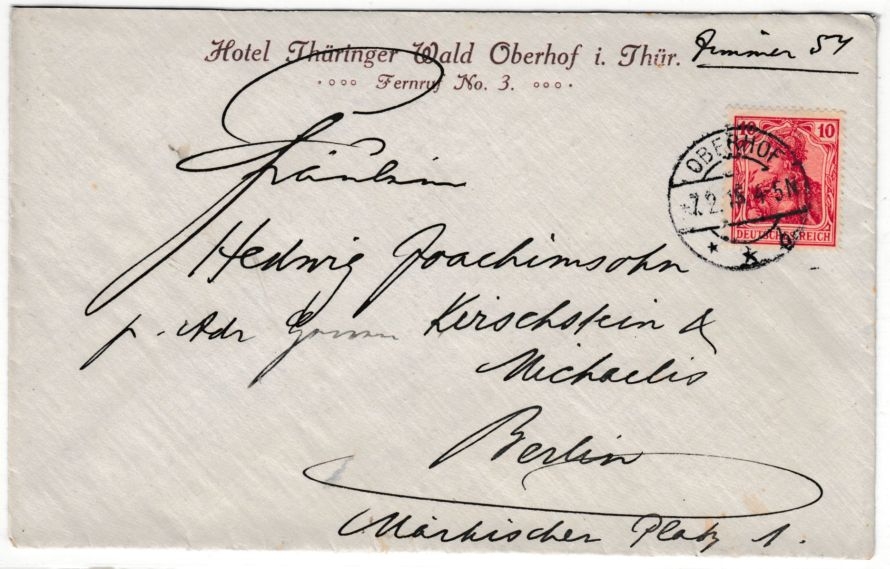 Hotel Thüringer Wald Oberhof i. Thür.
Zimmer 54
Fernruf No. 3.
10 10
OBERHOF
7.2.15.4-5N
b
DEUTSCHES REICH
Fräulein
Hedwig Joachimsohn
p. Adr Kirschstein &
Michaelis
Berlin
Märkischer Platz 1.